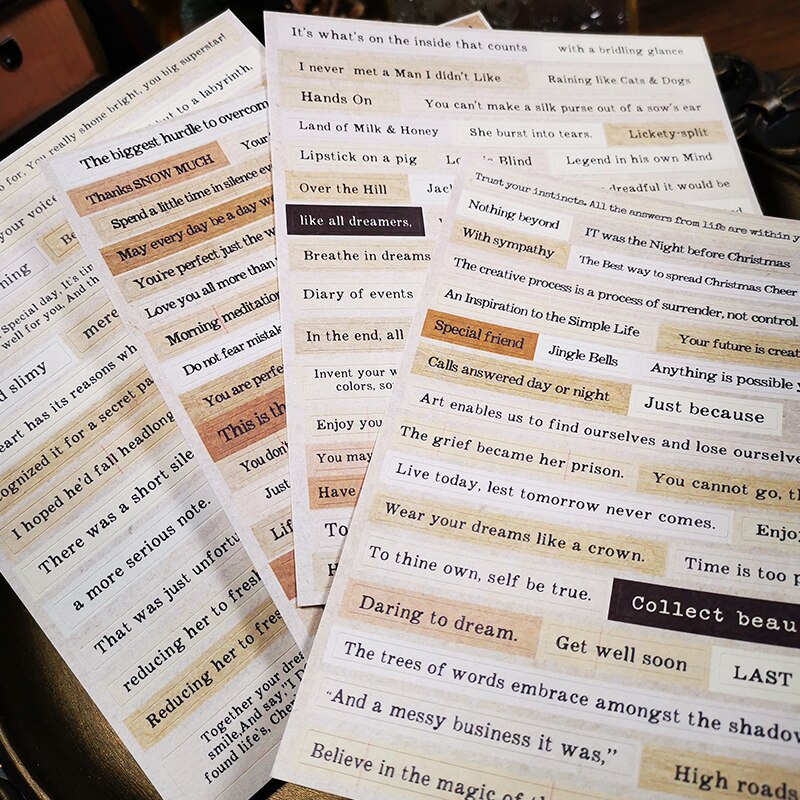 o for. You really shone bright, you big superstar!
but to a labyrinth.
your voice
ning
Special day. It's
well for you. And th
mere
d slimy
eart has its reasons wh
ognized it for a secret pa
I hoped he'd fall headlong
There was a short sile
a more serious note.
That was just unfortu
reducing her to fresh
Reducing her to fres
Together your drea
smile. And say, 'I D
found life's, Che
The biggest hurdle to overcom
Thanks SNOW MUCH
Your
Spend a little time in silence eve
May every day be a day wo
You're perfect just the w
Love you all more than
Morning meditation
Do not fear mistak
You are perfe
This is th
You don'
Just
Lif
It's what's on the inside that counts
with a bridling glance
I never met a Man I didn't Like
Raining like Cats & Dogs
Hands On
You can't make a silk purse out of a sow's ear
Land of Milk & Honey
She burst into tears.
Lickety-split
Lipstick on a pig
Lo
Blind
Legend in his own Mind
Over the Hill
Jac
dreadful it would be
like all dreamers,
Breathe in dreams
Diary of events
In the end, all
Invent your w
colors, so
Enjoy you
You may
Have
To
Trust your instincts. All the answers from life are within y
Nothing beyond
IT was the Night before Christmas
With sympathy
The Best way to spread Christmas Cheer
The creative process is a process of surrender, not control.
An Inspiration to the Simple Life
Your future is creat
Special friend
Jingle Bells
Anything is possible y
Calls answered day or night
Just because
Art enables us to find ourselves and lose ourselve
The grief became her prison.
You cannot go, th
Live today, lest tomorrow never comes.
Enjo
Wear your dreams like a crown.
Time is too p
To thine own, self be true.
Collect beau
Daring to dream.
Get well soon
LAST
The trees of words embrace amongst the shadow
"And a messy business it was,"
Believe in the magic of th
High roads